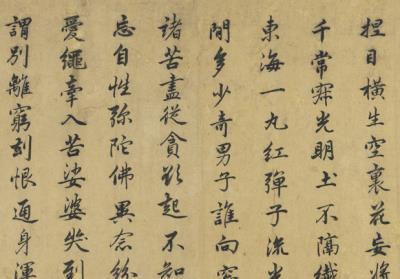 捏目橫生空裏花妄將
千常寂光明土不隔纖
東海一丸紅彈子流光
間多少奇男子誰向空
諸苦盡從貪欲起不知
忘自性彌陀佛異念紛
愛繩牽入苦娑婆失到
謂別離窮劫恨通身渾